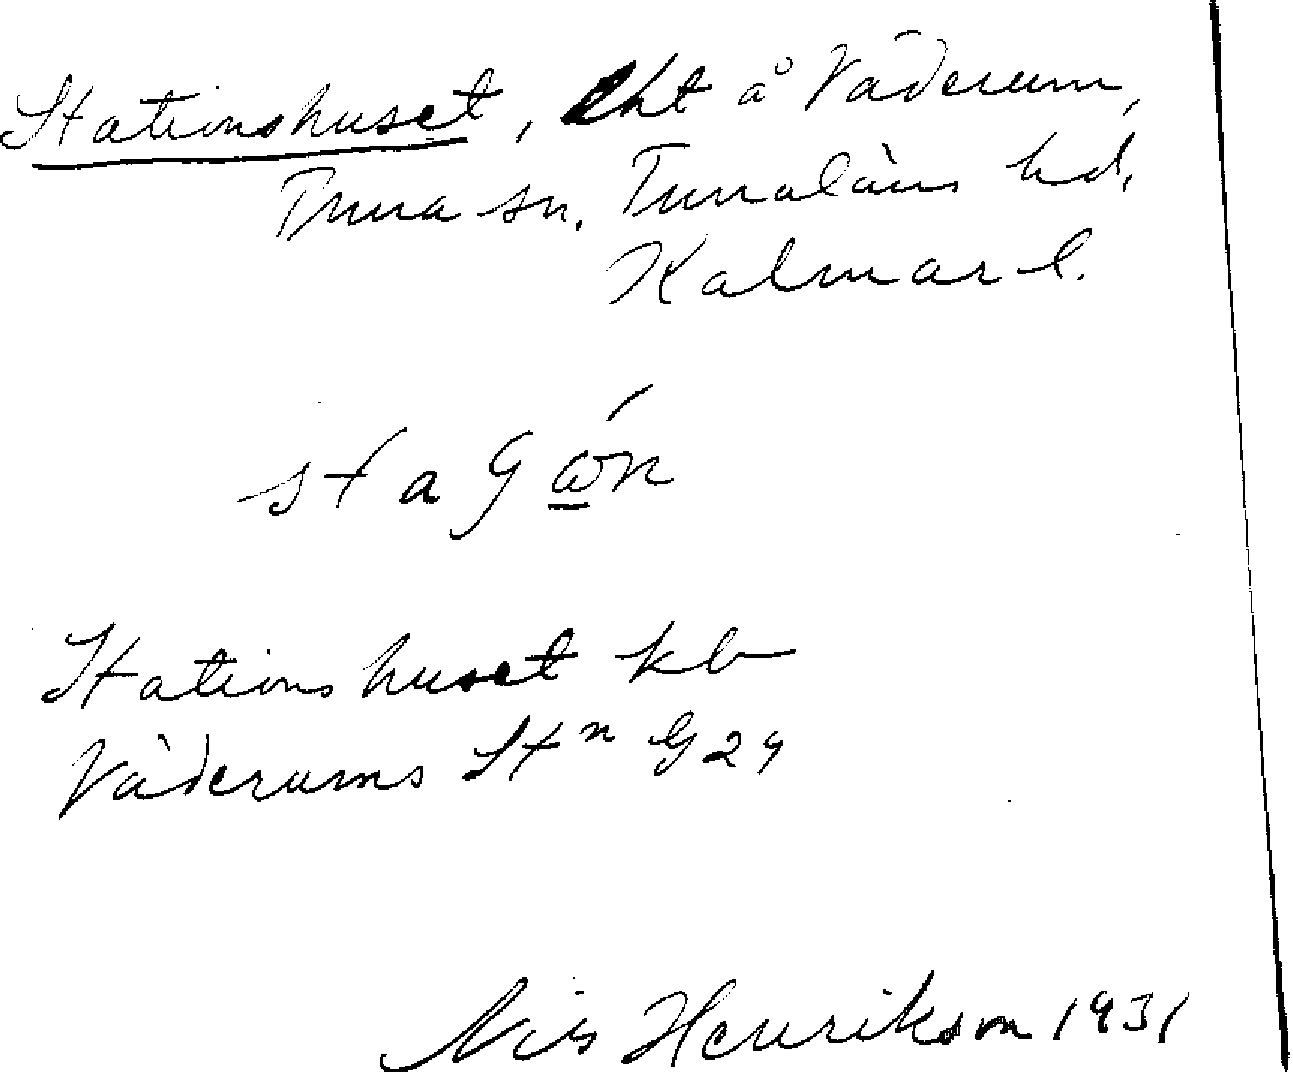 Stationshuset, lht å Väderum,
Tuna sn. Tunaläns hd,
Kalmar l.
staʃώ̲n
Stationshuset kb
Väderums Stⁿ G24
Nils Henrikson 1931